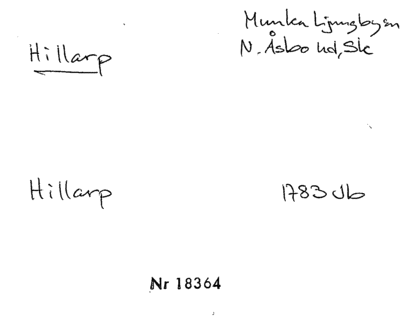 Munka Ljungby sn
Hillarp
N. Åsbo hd, Sk
Hillarp
1783 Jb
Nr 18364